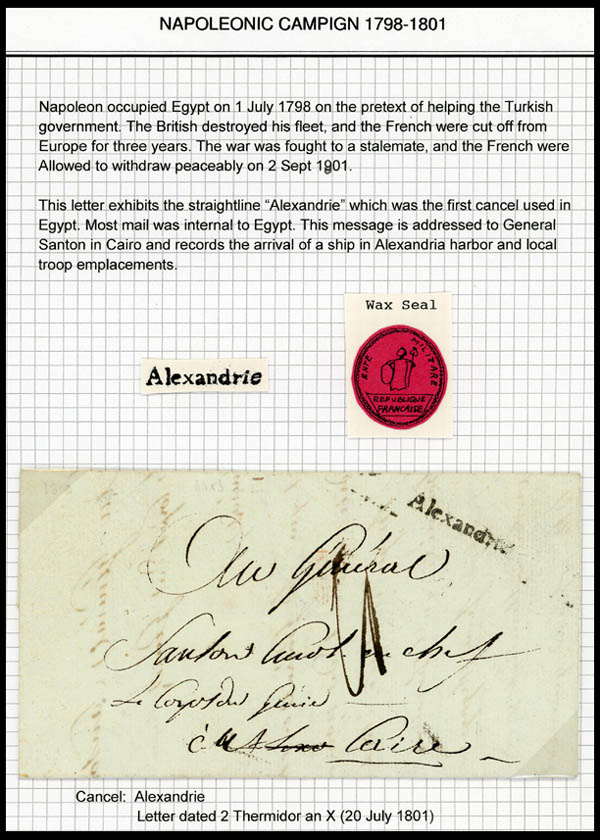 NAPOLEONIC CAMPIGN 1798-1801
Napoleon occupied Egypt on 1 July 1798 on the pretext of helping the Turkish
government. The British destroyed his fleet, and the French were cut off from
Europe for three years. The war was fought to a stalemate, and the French were
Allowed to withdraw peaceably on 2 Sept 1901.
This letter exhibits the straightline “Alexandrie” which was the first cancel used in
Egypt. Most mail was internal to Egypt. This message is addressed to General
Santon in Cairo and records the arrival of a ship in Alexandria harbor and local
troop emplacements.
Wax Seal
MILITARE
REPUBLIQUE
FRANCAISE
Alexandrie
Alexandrie
Au Général
Santon en chef
Le Corps du Génie
Caire
Cancel: Alexandrie
Letter dated 2 Thermidor an X (20 July 1801)